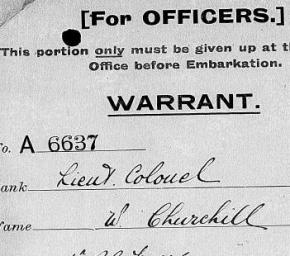 [For OFFICERS.]
This portion only must be given up at
Office before Embarkation.
WARRANT.
o. A 6637
ank Lieut. Colonel
ame W. Churchill